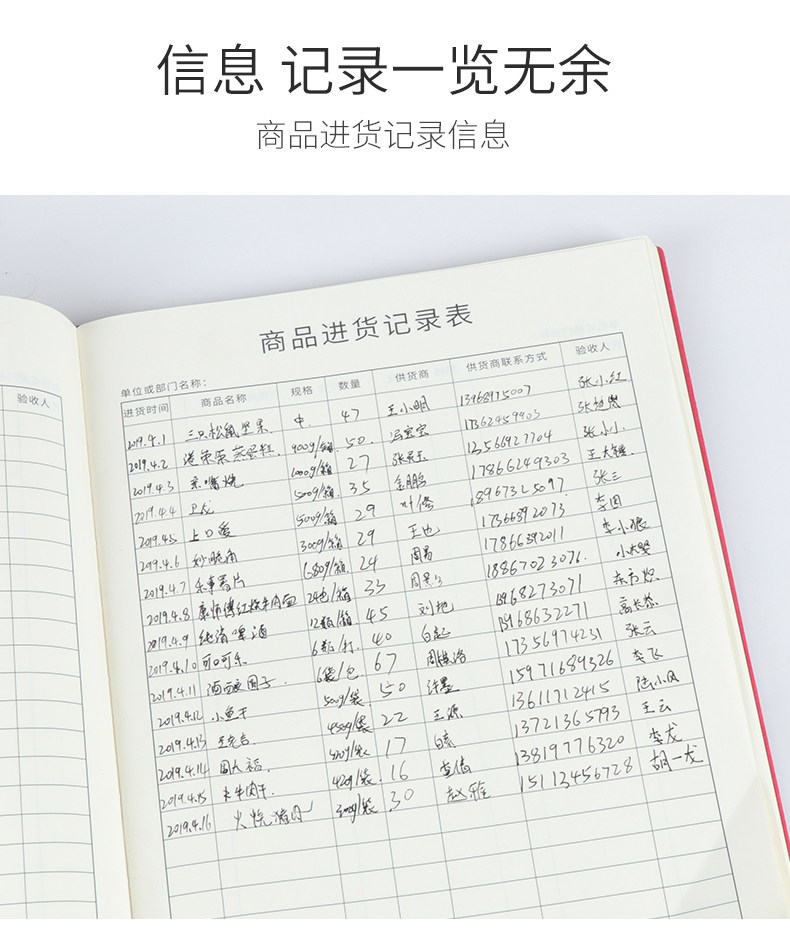 信息 记录一览无余
商品进货记录信息
商品进货记录表
单位或部门名称：
验收人
进货时间 商品名称 规格 数量 供货商 供货商联系方式 验收人
2019.4.1 三只松鼠坚果 中 47 王小明 13968975007 张小红
2019.4.2 港荣蒸蛋糕 900g/箱 50 冯宝宝 17362459903
2019.4.3 1000g/箱 27 张灵玉 12566927704 张小小
2019.4.4 卫龙 500g/箱 35 金鹏 17866249303 王大锤
2019.4.5 上口爱 500g/箱 29 叶修 18967325097 张三
2019.4.6 妙脆角 300g/箱 29 王也 17366392073 李四
2019.4.7 乐事薯片 1580g/箱 24 周易 17866392011 李小狼
2019.4.8 康师傅红烧牛肉面 24包/箱 33 18867023076
2019.4.9 纯清啤酒 12瓶/箱 45 刘地 18968273071 东方
2019.4.10 可口可乐 6瓶/打 40 白起 18968632271 高长恭
2019.4.11 6袋/包 67 周棋洛 17356974231 张云
2019.4.12 小鱼干 500g/袋 50 许墨 15971689326 李飞
2019.4.13 450g/袋 22 王源 13611712415 陆小凤
2019.4.14 周大福 420g/袋 17 13721365793 王云
2019.4.15 牛肉干 420g/袋 16 李信 13819776320 李龙
2019.4.16 火烧 300g/袋 30 赵雅 15113456728 胡一龙